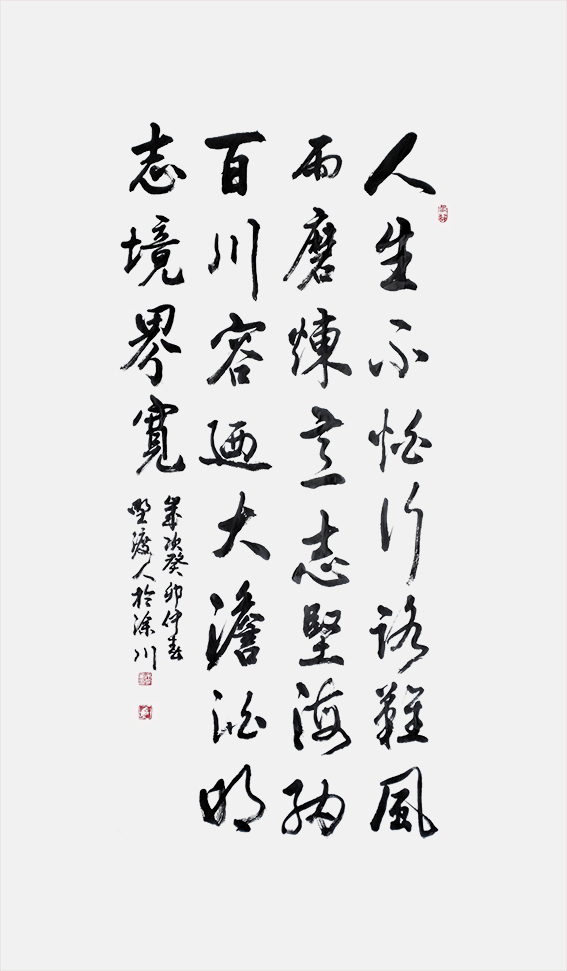 人生不怕行路難風
雨磨煉意志堅海納
百川容迺大澹泊明
志境界寬
歲次癸卯仲春
野渡人於滁川